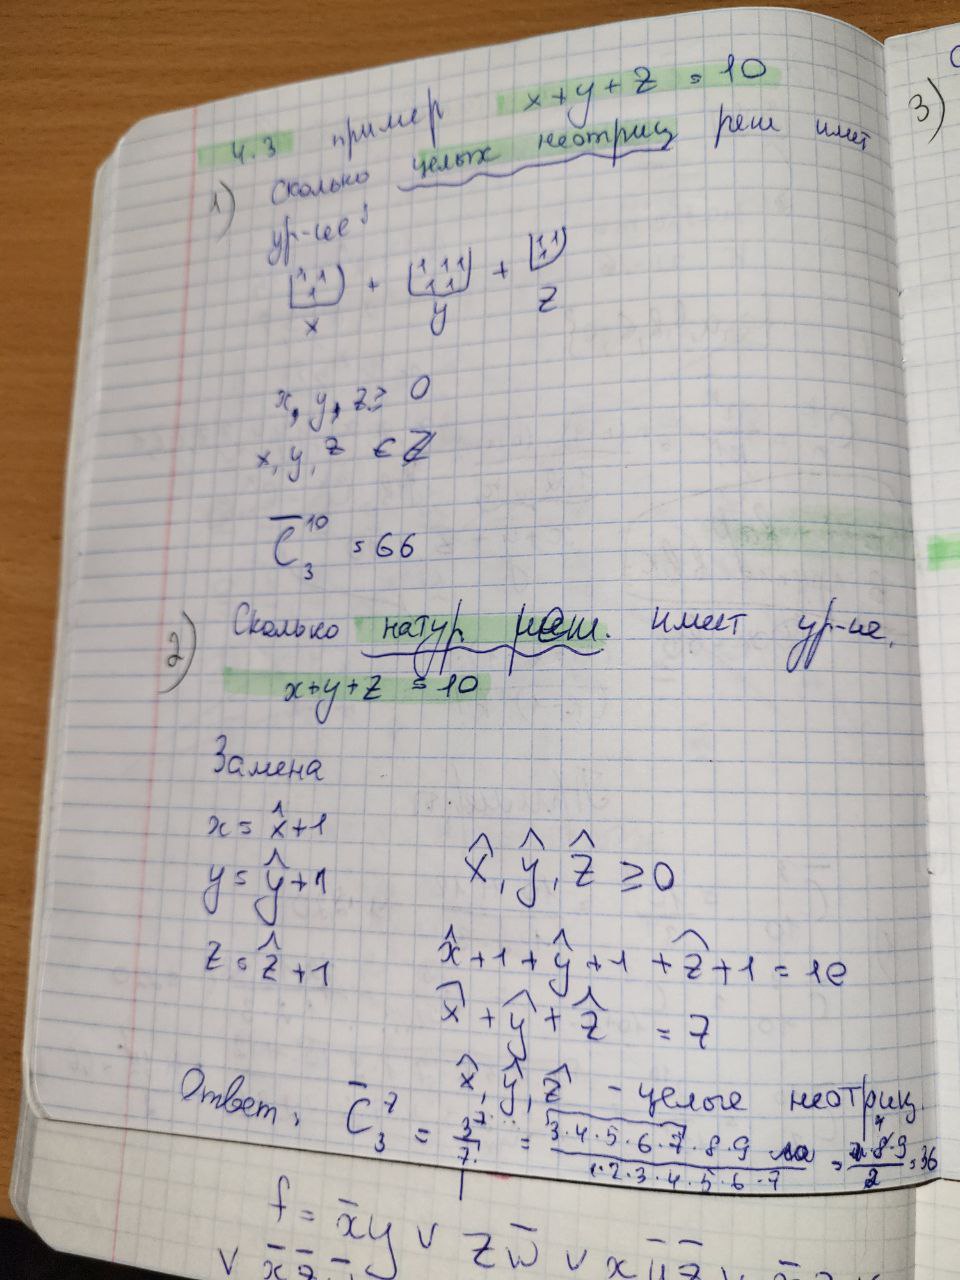 4.3 пример x+y+z = 10
1) Сколько целых неотриц реш имет
ур-ие?
x + y + z
x, y, z ≥ 0
x, y, z ∈ Z
C̅₃¹⁰ = 66
2) Сколько натур. реш. имеет ур-ие,
x+y+z = 10
Замена
x = x̂+1
y = ŷ+1
x̂, ŷ, ẑ ≥ 0
z = ẑ+1
x̂+1+ŷ+1+ẑ+1 = 10
x̂ + ŷ + ẑ = 7
x̂, ŷ, ẑ - целые неотриц.
Ответ: C̅₃⁷ = = 3·4·5·6·7·8·9 / 1·2·3·4·5·6·7 = 8·9 / 2 = 36
f = x̅y ∨ zw̅ ∨ x
3)